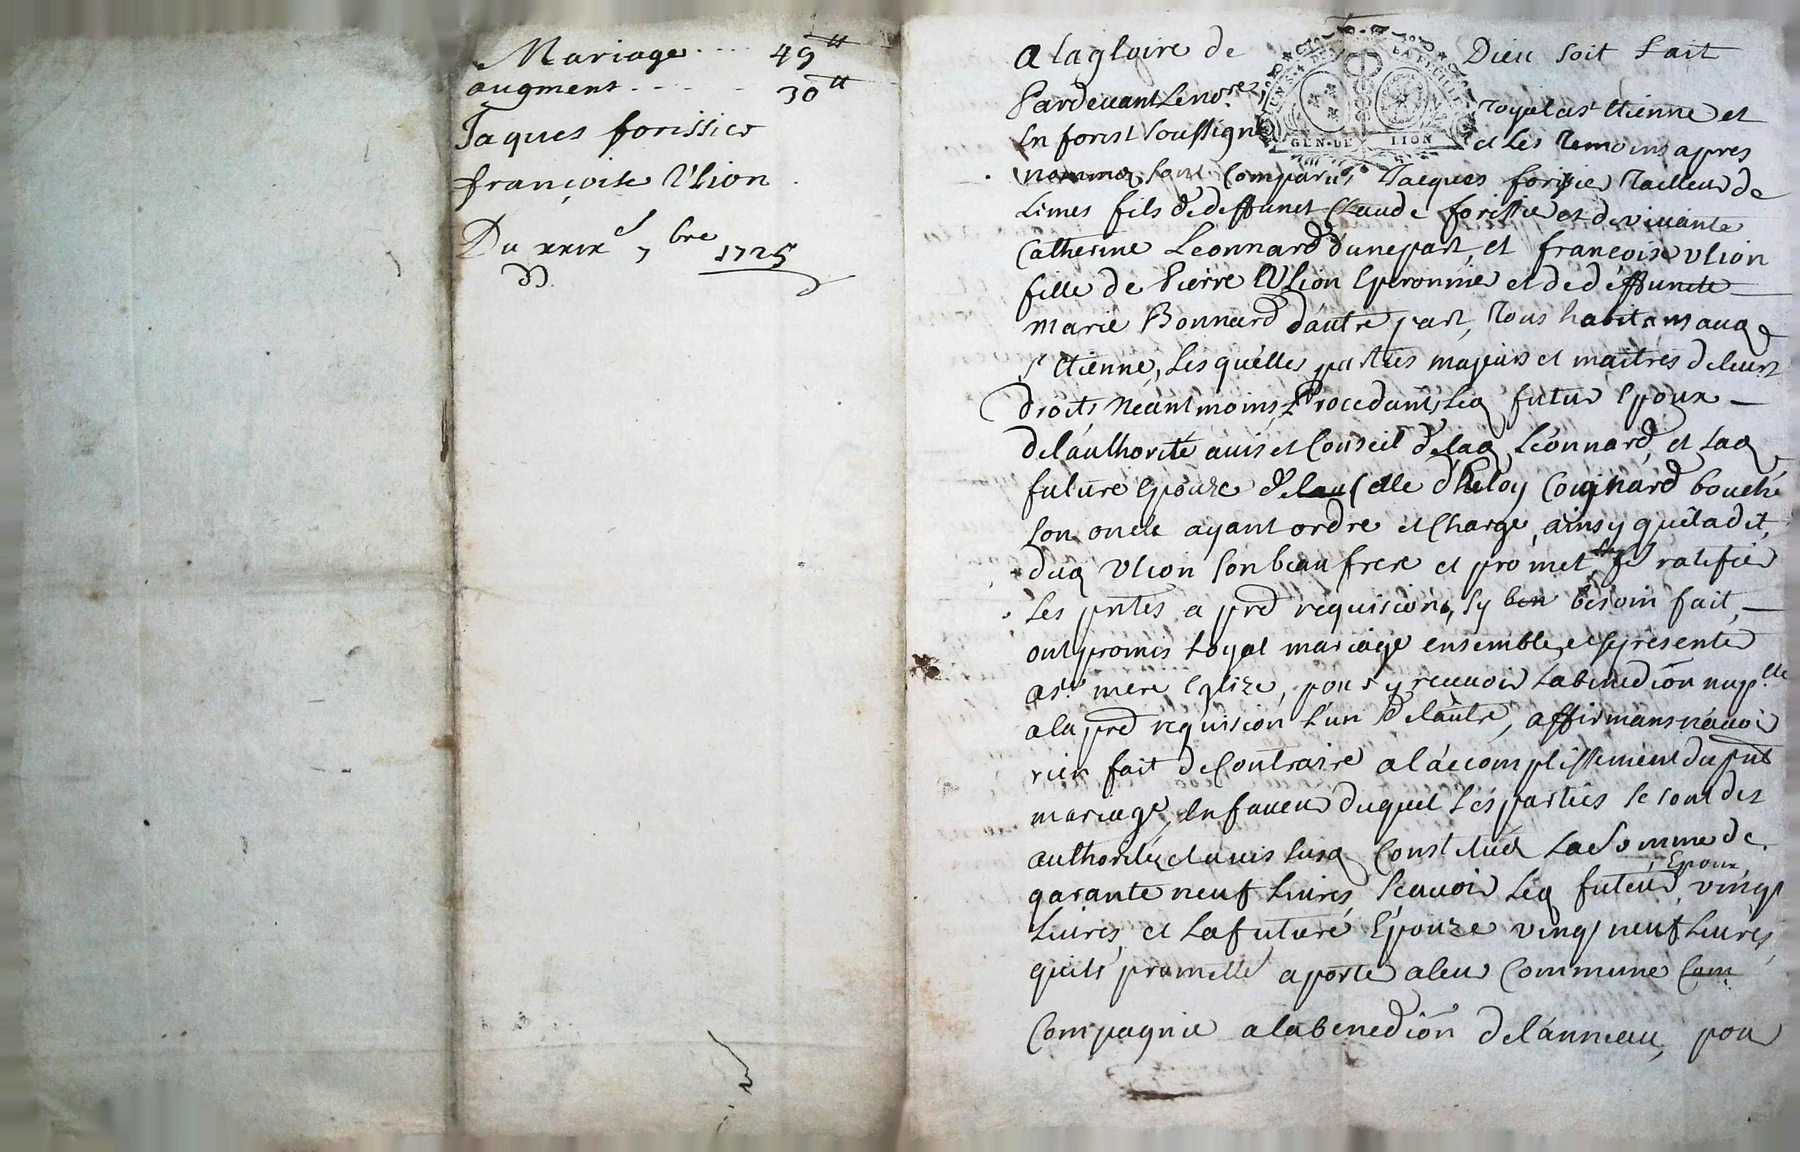 Mariage .... 49 ᵗᵗ
augment .... 30 ᵗᵗ
Jaques forissier
françoise l'lion
Du xxix e 7 bre 1725
A la gloire de Dieu soit fait
Pardevant Le no.re royal a st Etienne et
En forest Soussigné et Les temoins apres
nommez Sont Comparus Jacques forissier Tailleur de
Limes fils de deffunct Claude forissier et de vivante
Catherine Leonnard dune part, et françoise Ulion
fille de Pierre Ulion Eperonnie et de deffuncte
marie Bonnard d'autre part, Tous habitans aud
st Etienne, Lesquelles parties majeurs et maitres de leurs
droits neantmoins Procedant, Led futur Epoux
de l'authorité avis et Conseil de lad Leonnard, et lad
future Epouze de celle d'heloy Cognard bouché
son oncle ayant ordre et Charge, ainsy quil a dit,
dud Ulion son beau frere et promet ratifier
Les pntes a pre requisicion, sy ben besoin fait,
ont promis Loyal mariage ensemble et se presenter
a ste mere Eglize, pour y recevoir La benediôn nup.lle
a la pre requisicion l'un de l'autre, affirmans n'avoir
rien fait de Contraire a l'accomplissement du pnt
mariage, En faveur duquel Les parties se sont des
authorité et avis susd Constitué La Somme de
garante neuf Livres, Scavoir Led futeur Epoux, vingt
Livres, et La future Epouze vingt neuf Livres,
quils promette aporte a leur Commune Com
Compagnie a la benediôn de l'anneau, pour
GEN. DE LION